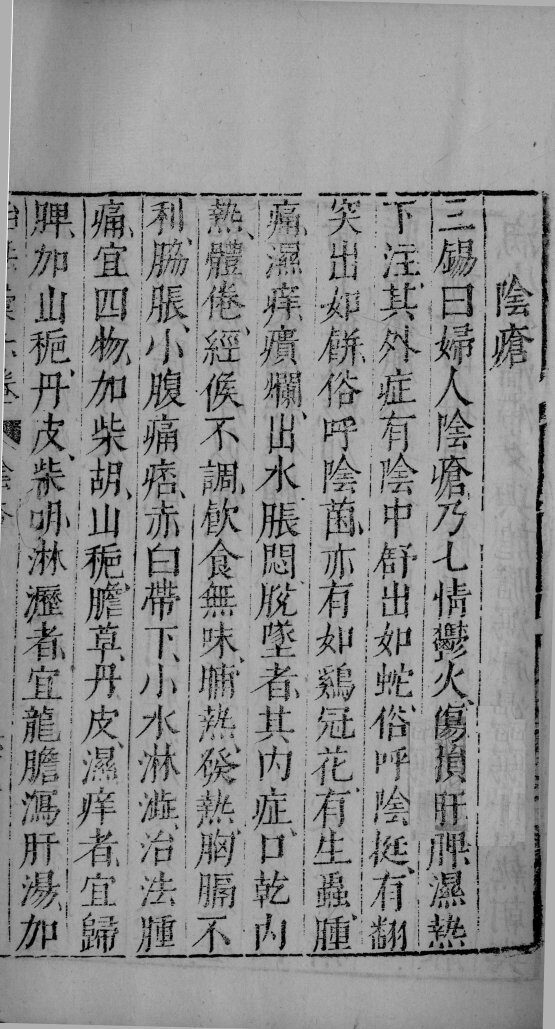 陰瘡
三錫曰婦人陰瘡乃七情鬱火傷損肝脾濕熱
下注其外症有陰中舒出如蛇俗呼陰挺有翻
突出如餅俗呼陰菌亦有如鷄冠花有生蟲腫
痛濕痒潰爛出水脹悶脫墜者其內症口乾內
熱體倦經候不調飲食無味晡熱發熱胸膈不
利脇脹小腹痛痞赤白帶下小水淋澁治法腫
痛宜四物加柴胡山梔膽草丹皮濕痒者宜歸
脾加山梔丹皮柴胡淋瀝者宜龍膽瀉肝湯加